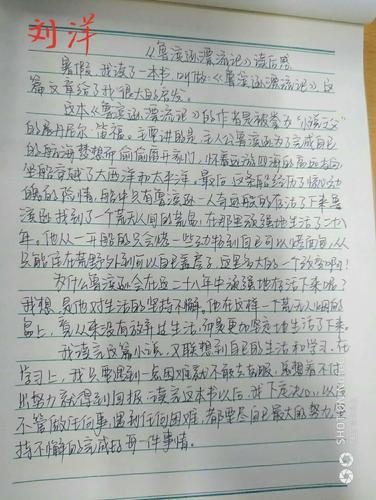 刘洋
《鲁滨逊漂流记》读后感
暑假,我读了一本书,叫做《鲁滨逊漂流记》这
篇文章给了我很大的启发。
这本《鲁滨逊漂流记》的作者是被誉为"小说之父"
的展丹尼尔·笛福。主要讲的是:主人公鲁滨逊为了完成自己
的航海梦想而偷偷离开家门,怀着远游四海的高远志向,
坐船穿越了大西洋和太平洋。最后,这条船经历了惊心动
魄的险情,船中只有鲁滨逊一人奇迹般的存活了下来。鲁
滨逊找到了一个荒无人烟的荒岛,在那里顽强地生活了二十八
年。他从一开始的只会烤一些动物到自己可以烤面包,从
只能住在荒野外到可以自己盖房子,这是多大的一个改变啊!
为什么鲁滨逊会在这二十八年中顽强地存活下来呢?
我想,是他对生活的坚持不懈。他在这样一个荒无人烟的
岛上,看从来没有放弃过生活,而是更加坚定地生活了下来。
我读完这篇小说,又联想到自己的生活和学习。在
学习上,我只要遇到一点困难就不敢去克服,总想着不付
出努力就得到回报。读完这本书以后,我下定决心,以后
不管做任何事,遇到任何困难,都要尽自己最大的努力,坚
持不懈的完成好每一件事情。
SHOT ON